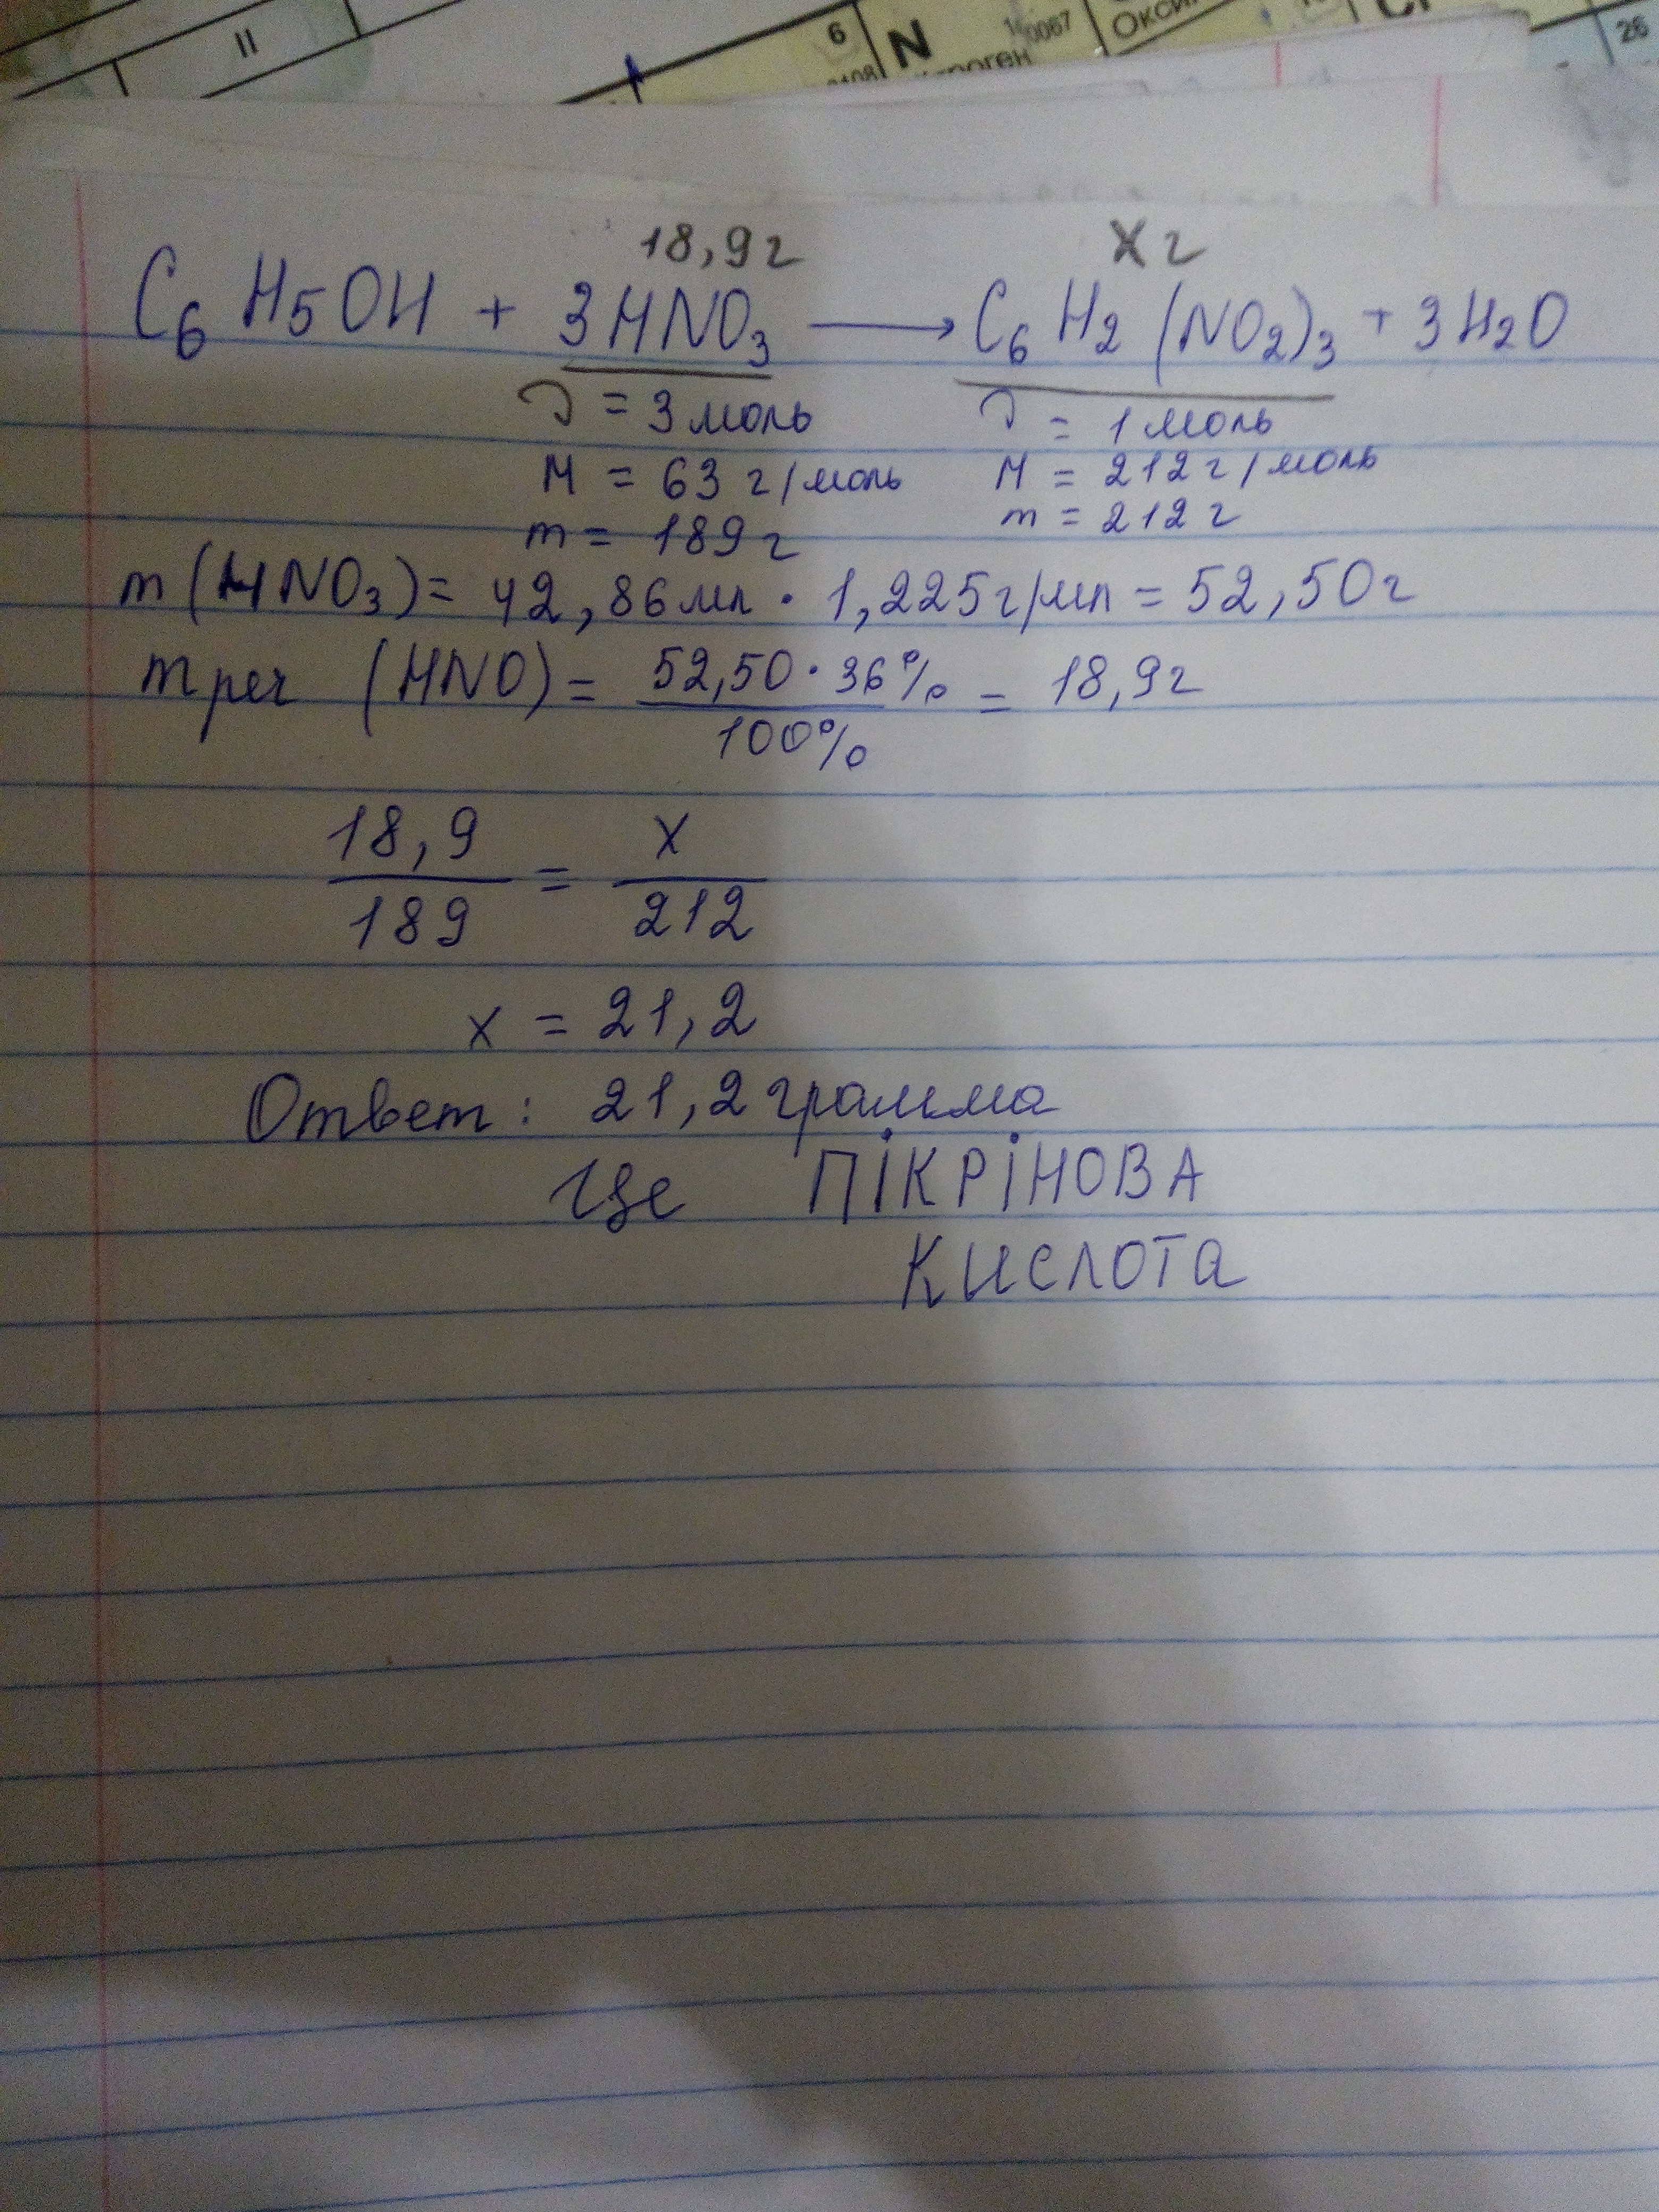 II
6
N
14,0067
Окси
26
18,9г
Xг
C₆H₅OH + 3HNO₃ ⟶ C₆H₂(NO₂)₃ + 3H₂O
ν = 3 моль
ν = 1 моль
M = 63 г/моль
M = 212 г/моль
m = 189 г
m = 212 г
m(HNO₃) = 42,86 мл · 1,225 г/мл = 52,50 г
m реч (HNO) = 52,50 · 36% / 100% = 18,9 г
18,9 / 189 = x / 212
x = 21,2
Ответ: 21,2 грамма
Це ПІКРІНОВА
КИСЛОТА